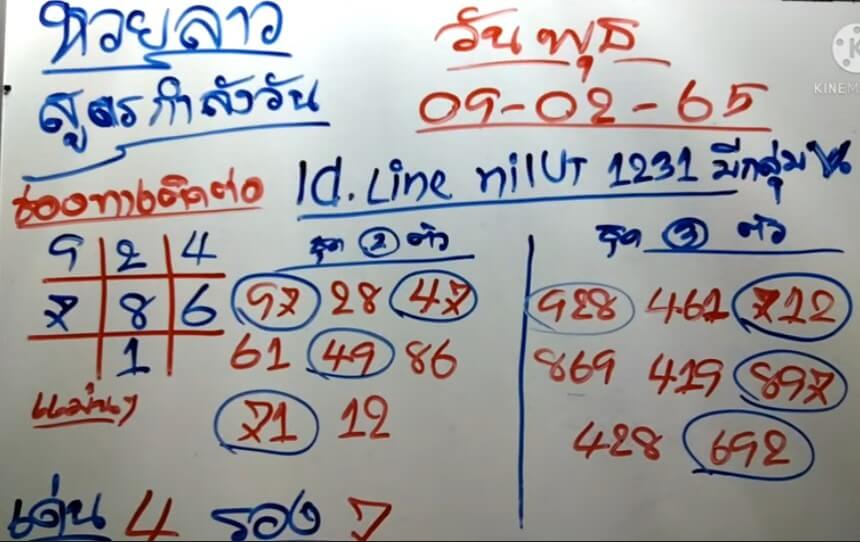 หวยลาว วันพุธ
สูตรกำลังวัน 09-02-65
KINEM
ช่องทางติดต่อ Id.Line nilUT 1231 มีกลุ่ม
9 2 4 ชุด 2 ตัว ชุด 3 ตัว
7 8 6 97 28 47 928 461 712
1 61 49 86 869 419 897
แม่นๆ 71 12 428 692
เด่น 4 รอง 7